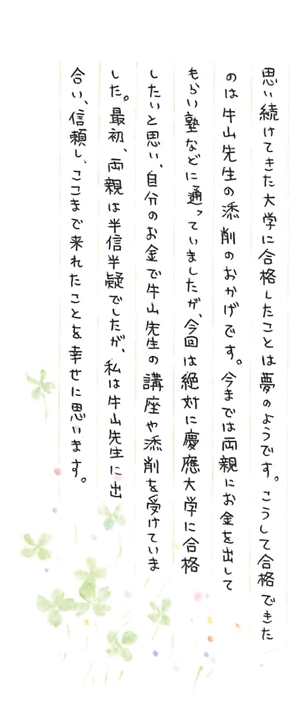 思い続けてきた大学に合格したことは夢のようです。こうして合格できた
のは牛山先生の添削のおかげです。今までは両親にお金を出して
もらい塾などに通っていましたが、今回は絶対に慶應大学に合格
したいと思い、自分のお金で牛山先生の講座や添削を受けていま
した。最初、両親は半信半疑でしたが、私は牛山先生に出
合い、信頼し、ここまで来れたことを幸せに思います。